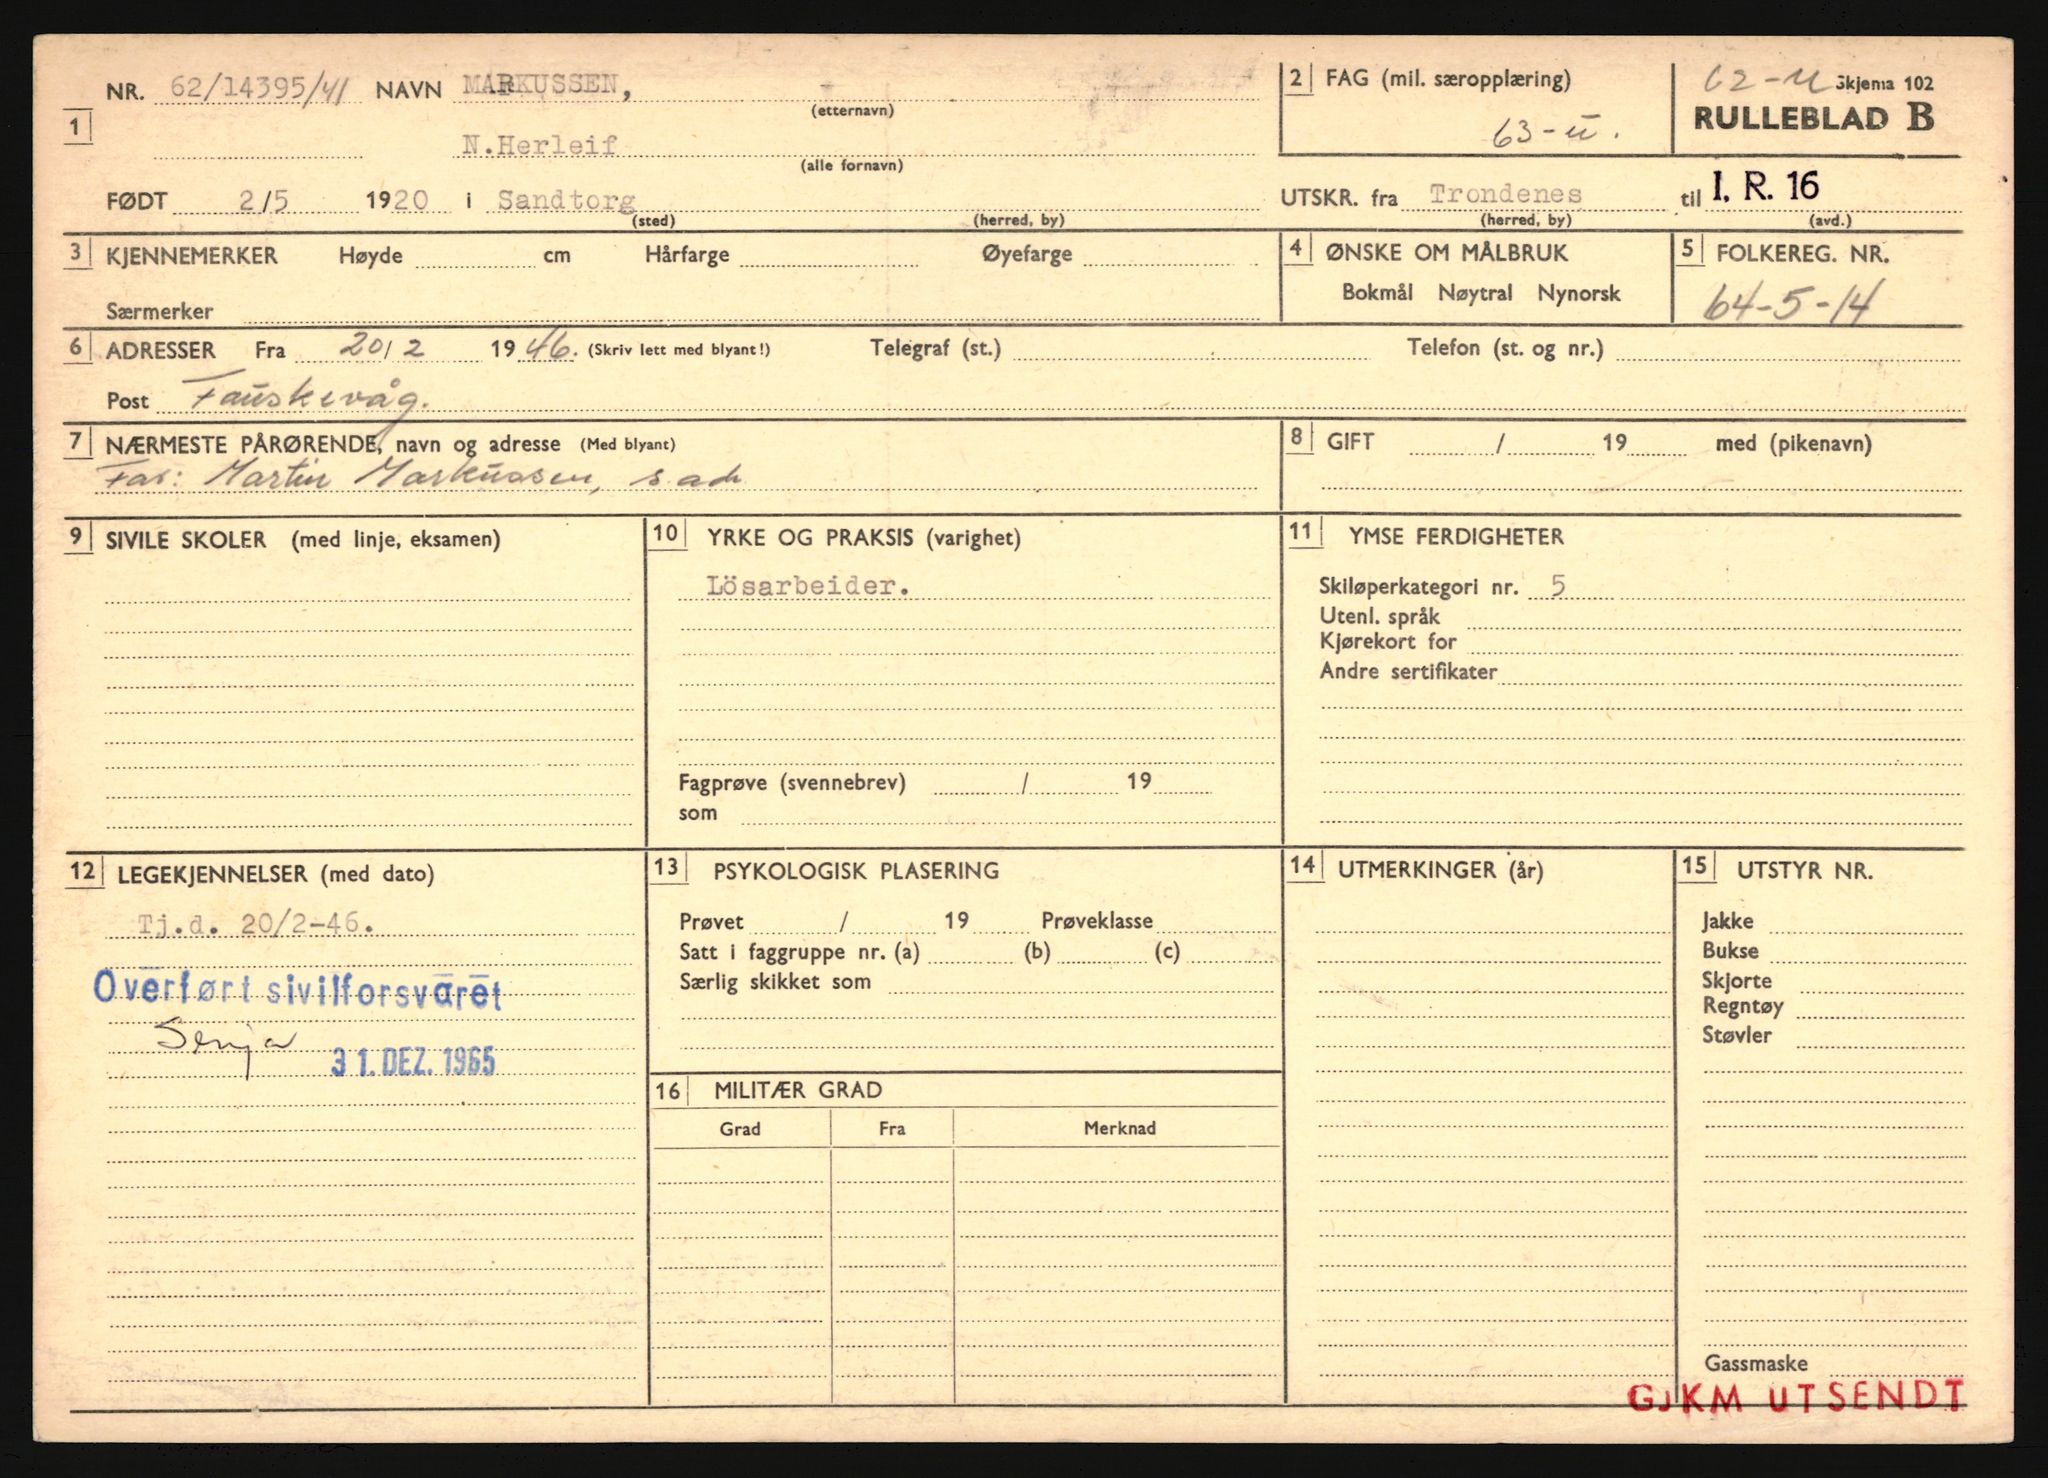 NR. 62/14395/41 NAVN MARKUSSEN, (etternavn)
1
N.Herleif (alle fornavn)
FØDT 2/5 1920 i Sandtorg (sted) (herred, by)
2 FAG (mil. særopplæring)
63-u.
62-u Skjema 102
RULLEBLAD B
UTSKR. fra Trondenes (herred, by) til I. R. 16 (avd.)
3 KJENNEMERKER Høyde cm Hårfarge Øyefarge
Særmerker
4 ØNSKE OM MÅLBRUK
Bokmål Nøytral Nynorsk
5 FOLKEREG. NR.
64-5-14
6 ADRESSER Fra 20/2 1946. (Skriv lett med blyant!) Telegraf (st.) Telefon (st. og nr.)
Post Fauskevåg.
7 NÆRMESTE PÅRØRENDE, navn og adresse (Med blyant)
Far: Martin Markussen, s.adr
8 GIFT / 19 med (pikenavn)
9 SIVILE SKOLER (med linje, eksamen)
10 YRKE OG PRAKSIS (varighet)
Lösarbeider.
Fagprøve (svennebrev) / 19
som
11 YMSE FERDIGHETER
Skiløperkategori nr. 5
Utenl. språk
Kjørekort for
Andre sertifikater
12 LEGEKJENNELSER (med dato)
Tj.d. 20/2-46.
Overført sivilforsvaret
Senja
31. DEZ. 1965
13 PSYKOLOGISK PLASERING
Prøvet / 19 Prøveklasse
Satt i faggruppe nr. (a) (b) (c)
Særlig skikket som
16 MILITÆR GRAD
Grad Fra Merknad
14 UTMERKINGER (år)
15 UTSTYR NR.
Jakke
Bukse
Skjorte
Regntøy
Støvler
Gassmaske
GJKM UTSENDT